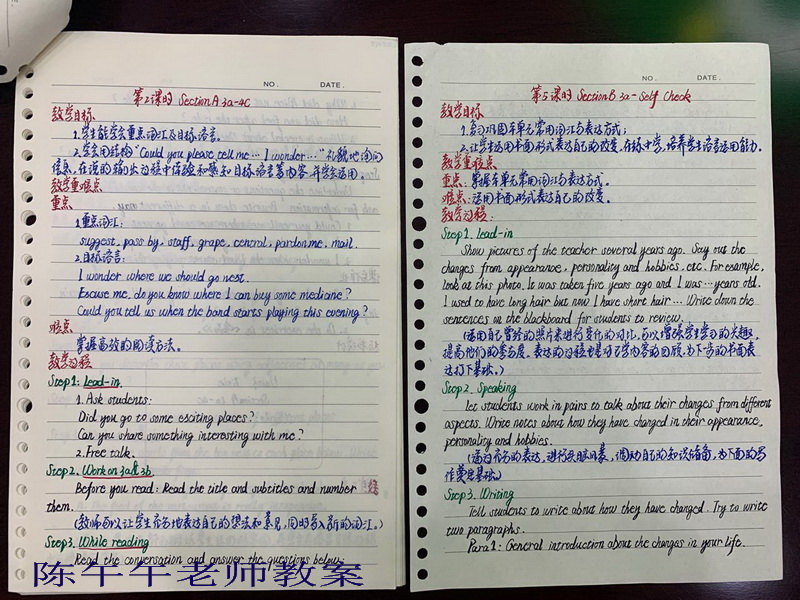 NO.
DATE.
第2课时 Section A 3a-4C
教学目标
1.学生能学会重点词汇及目标语言。
2.学会用结构"Could you please tell me… I wonder…"礼貌地询问
信息,在说的输出过程中体验和感知目标语言等内容并学会运用。
教学重难点
重点
1.重点词汇:
suggest, pass by, staff, grape, central, pardon me, mail.
2.目标语言:
I wonder where we should go next.
Excuse me, do you know where I can buy some medicine?
Could you tell us when the band starts playing this evening?
难点
掌握高效的阅读方法。
教学过程
Step1: Lead-in.
1. Ask students:
Did you go to some exciting places?
Can you share something interesting with me?
2. Free talk.
Step2. Work on 3a& 3b
Before you read: Read the title and subtitles and number
them.
(教师可以让学生充分地表达自己的想法和意见,同时导入新的词汇。)
Step3. While reading
Read the conversation and answer the questions below:
陈午午老师教案
NO.
DATE.
第5课时 Section B 3a - Self Check
教学目标
1.复习巩固本单元常用词汇与表达方式;
2.让学生运用书面形式表达自己的改变,在练中学,培养学生语言运用能力。
教学重难点
重点:掌握本单元常用词汇与表达方式。
难点:运用书面形式表达自己的改变。
教学过程:
Step1. Lead-in
Show pictures of the teacher several years ago. Say out the
changes from appearance, personality and hobbies, etc. For example,
look at this photo. It was taken five years ago and I was…years old.
I used to have long hair but now I have short hair… Write down the
sentences on the blackboard for students to review.
(运用自己曾经的照片来进行变化的对比,可以增强学生学习的兴趣,
提高他们的参与度。表达的过程也是对所学内容的回顾,为下方的书面表
达打下基础。)
Step2. Speaking
Let students work in pairs to talk about their changes from different
aspects. Write notes about how they have changed in their appearance,
personality and hobbies.
(通过充分的表达,进行头脑风暴,调动自己的知识储备,为下面的写
作奠定基础。)
Step3. Writing
Tell students to write about how they have changed. Try to write
two paragraphs.
Para1: General introduction about the changes in your life.